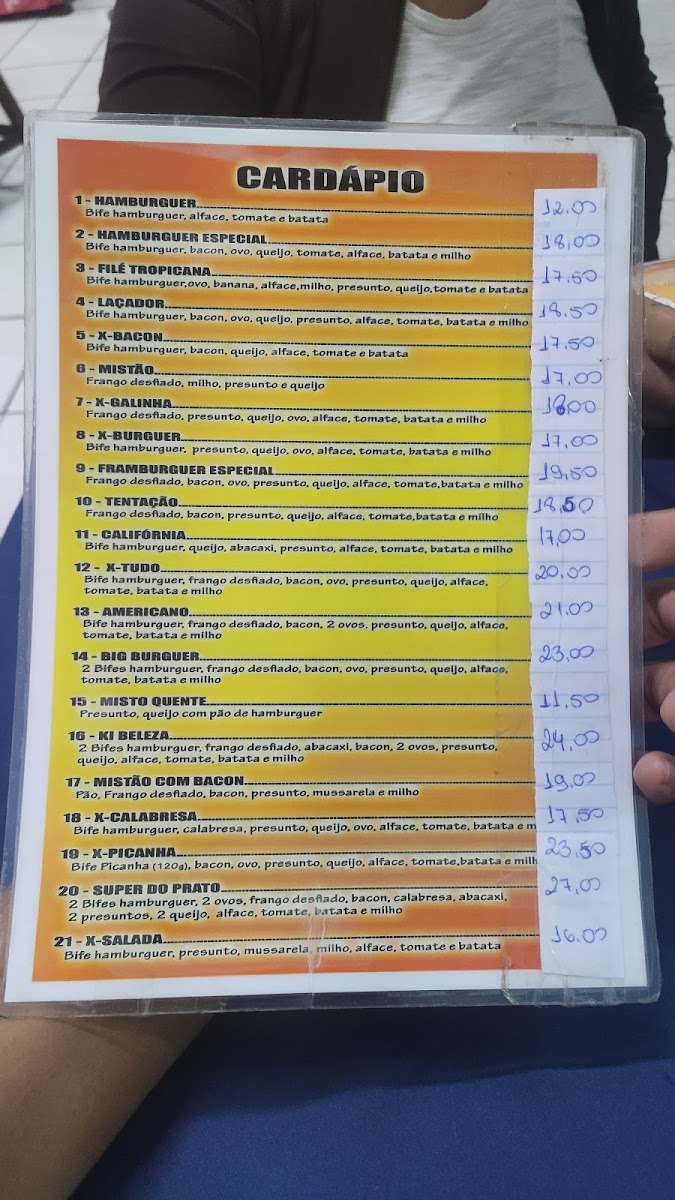 CARDÁPIO
1 - HAMBURGUER 12,00
Bife hamburguer, alface, tomate e batata
2 - HAMBURGUER ESPECIAL 18,00
Bife hamburguer, bacon, ovo, queijo, tomate, alface, batata e milho
3 - FILÉ TROPICANA 17,50
Bife hamburguer,ovo, banana, alface,milho, presunto, queijo,tomate e batata
4 - LAÇADOR 18,50
Bife hamburguer, bacon, ovo, queijo, presunto, alface, tomate, batata e milho
5 - X-BACON 17,50
Bife hamburguer, bacon, queijo, alface, tomate e batata
6 - MISTÃO 17,00
Frango desfiado, milho, presunto e queijo
7 - X-GALINHA 18,00
Frango desfiado, presunto, queijo, ovo, alface, tomate, batata e milho
8 - X-BURGUER 17,00
Bife hamburguer, presunto, queijo, ovo, alface, tomate, batata e milho
9 - FRAMBURGUER ESPECIAL 19,50
Frango desfiado, bacon, ovo, presunto, queijo, alface, tomate,batata e milho
10 - TENTAÇÃO 18,50
Frango desfiado, bacon, presunto, queijo, alface, tomate,batata e milho
11 - CALIFÓRNIA 17,00
Bife hamburguer, queijo, abacaxi, presunto, alface, tomate, batata e milho
12 - X-TUDO 20,00
Bife hamburguer, frango desfiado, bacon, ovo, presunto, queijo, alface,
tomate, batata e milho
13 - AMERICANO 21,00
Bife hamburguer, frango desfiado, bacon, 2 ovos, presunto, queijo, alface,
tomate, batata e milho
14 - BIG BURGUER 23,00
2 Bifes hamburguer, frango desfiado, bacon, ovo, presunto, queijo, alface,
tomate, batata e milho
15 - MISTO QUENTE 11,50
Presunto, queijo com pão de hamburguer
16 - KI BELEZA 24,00
2 Bifes hamburguer, frango desfiado, abacaxi, bacon, 2 ovos, presunto,
queijo, alface, tomate, batata e milho
17 - MISTÃO COM BACON 19,00
Pão, Frango desfiado, bacon, presunto, mussarela e milho
18 - X-CALABRESA 17,50
Bife hamburguer, calabresa, presunto, queijo, ovo, alface, tomate, batata e m
19 - X-PICANHA 23,50
Bife Picanha (120g), bacon, ovo, presunto, queijo, alface, tomate,batata e milh
20 - SUPER DO PRATO 27,00
2 Bifes hamburguer, 2 ovos, frango desfiado, bacon, calabresa, abacaxi,
2 presuntos, 2 queijo, alface, tomate, batata e milho
21 - X-SALADA 16,00
Bife hamburguer, presunto, mussarela, milho, alface, tomate e batata